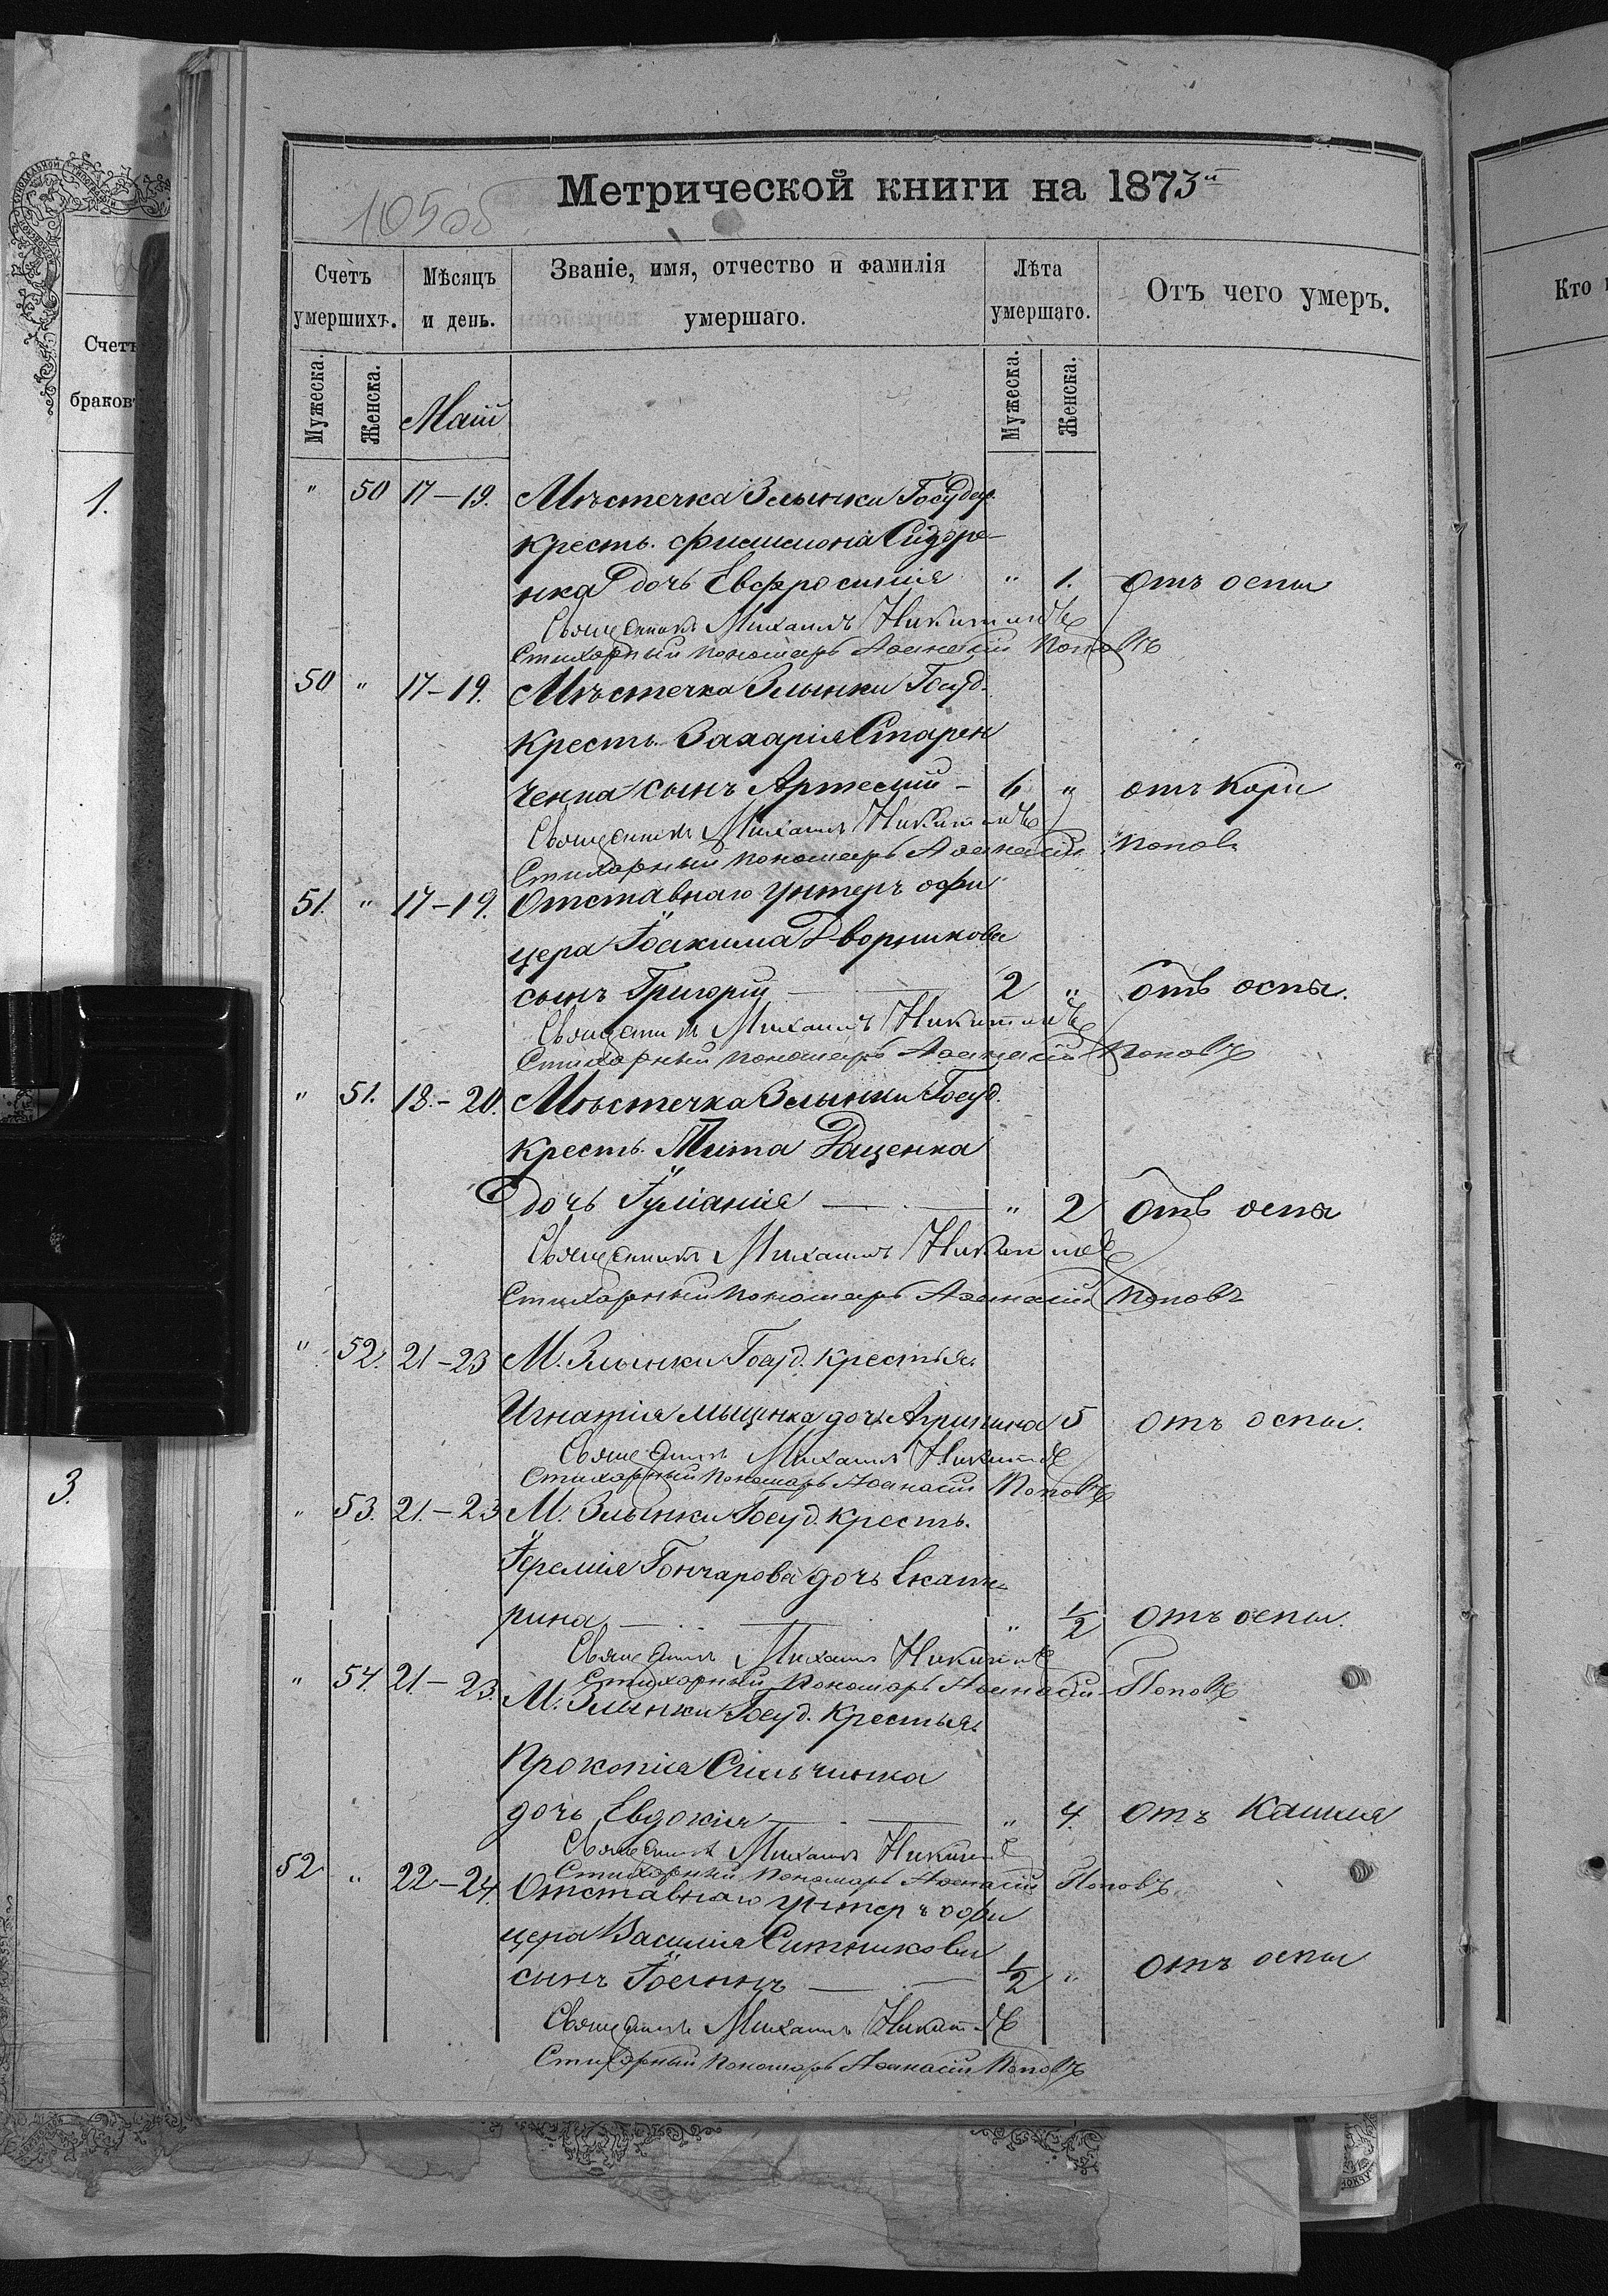 105об
Метрической книги на 1873й
Счетъ умершихъ.
Мѣсяцъ и день.
Званіе, имя, отчество и фамилія умершаго.
Лѣта умершаго.
Отъ чего умеръ.
Мужеска.
Женска.
Маій
Мужеска.
Женска.
" 50 17-19. Мѣстечка Злынки Государ.
кресть. Филимона Сидоре-
нка дочь Евфросинія " 1. отъ оспы
Священникъ Михаилъ Никитинъ
Стихарный пономарь Аѳанасій Поповъ
50 " 17-19. Мѣстечка Злынки Госуд.
кресть. Захарія Старен
ченка сынъ Артемій - 6 " отъ кори
Священникъ Михаилъ Никитинъ
Стихарный пономарь Аѳанасій Поповъ
51. " 17-19. Отставнаго унтеръ офи
цера Іоакима Дворникова
сынъ Григорій — 2 " отъ оспы.
Священникъ Михаилъ Никитинъ
Стихарный пономарь Аѳанасій Поповъ
" 51. 18.-20. Мѣстечка Злынки Госуд.
кресть. Тита Раценка
дочь Іуліанія — " 2 отъ оспы
Священникъ Михаилъ Никитинъ
Стихарный пономарь Аѳанасій Поповъ
" 52. 21-23 М. Злынки Госуд. крестья.
Игнатія дочь Агрипина 5 отъ оспы.
Священникъ Михаилъ Никитинъ
Стихарный пономарь Аѳанасій Поповъ
" 53. 21.-23 М. Злынки Госуд. кресть.
Іеремія Гончарова дочь Екате-
рина — " 1/2 отъ оспы.
Священникъ Михаилъ Никитинъ
Стихарный пономарь Аѳанасій Поповъ
" 54 21.-23. М. Злынки Госуд. крестья.
Прокопія
дочь Евдокія — " 4. отъ кашля
Священникъ Михаилъ Никитинъ
Стихарный пономарь Аѳанасій Поповъ
52 " 22-24. Отставнаго унтеръ офи
цера Василія Ситникова
сынъ Іоаннъ — 1/2 " отъ оспы
Священникъ Михаилъ Никитинъ
Стихарный пономарь Аѳанасій Поповъ
Счетъ
браковъ
1.
3.
Кто